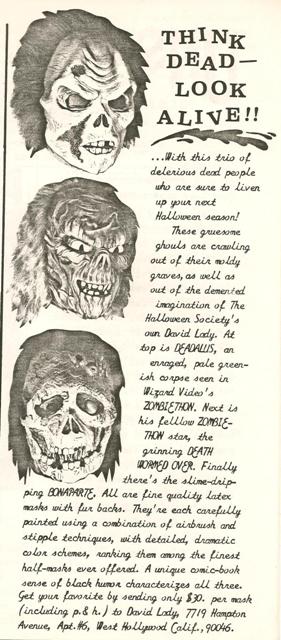 THINK
DEAD—
LOOK
ALIVE!!
...With this trio of
delerious dead people
who are sure to liven
up your next
Halloween season!
These gruesome
ghouls are crawling
out of their moldy
graves, as well as
out of the demented
imagination of The
Halloween Society's
own David Lady. At
top is DEADALUS, an
enraged, pale green-
ish corpse seen in
Wizard Video's
ZOMBIETHON. Next is
his felllow ZOMBIE-
THON star, the
grinning DEATH
WORMED OVER. Finally
there's the slime-drip-
ping BONAPARTE. ALL are fine quality latex
masks with fur backs. They're each carefully
painted using a combination of airbrush and
stipple techniques, with detailed, dramatic
color schemes, ranking them among the finest
half-masks ever offered. A unique comic-book
sense of black humor characterizes all three.
Get your favorite by sending only $30. per mask
(including p.& h.) to David Lady, 7719 Hampton
Avenue, Apt.#6, West Hollywood Calif., 90046.